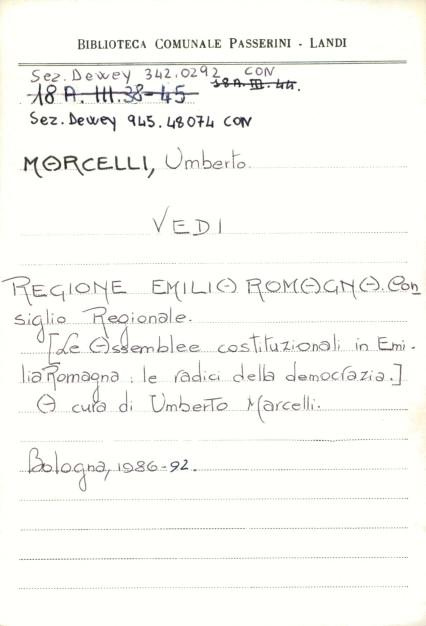 BIBLIOTECA COMUNALE PASSERINI - LANDI
Sez. Dewey 342.0292 CON
18 A. III. 38-45 18A. III. 44.
Sez. Dewey 945.48074 CON
MARCELLI, Umberto.
VEDI
REGIONE EMILIA ROMAGNA. Con
siglio Regionale.
[Le Assemblee costituzionali in Emi-
lia Romagna : le radici della democrazia.]
A cura di Umberto Marcelli.
Bologna, 1986-92.